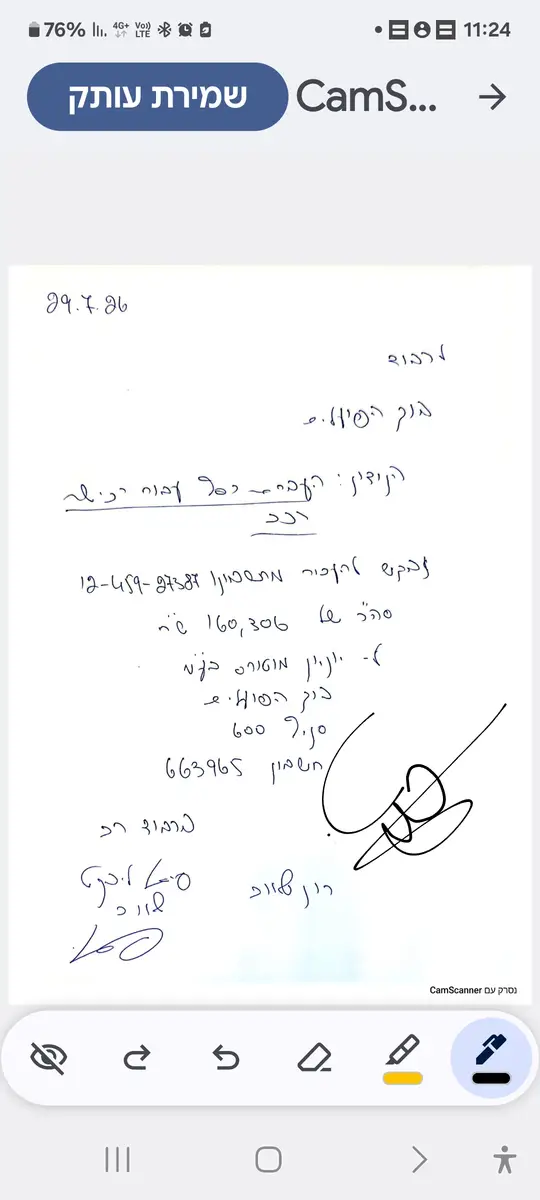 76% 4G+ Vo)) LTE 11:24
שמירת עותק CamS...
29.7.26
לכבוד
בנק הפועלים
הנידון: העברת כסף עבור רכישת
רכב
נבקש להעביר מחשבוננו 12-459-27387
סה"כ של 160,306 ש"ח
ל- יוניון מוטורס בע"מ
בנק הפועלים
סניף 600
חשבון 663965
בכבוד רב
רון
נסרק עם CamScanner